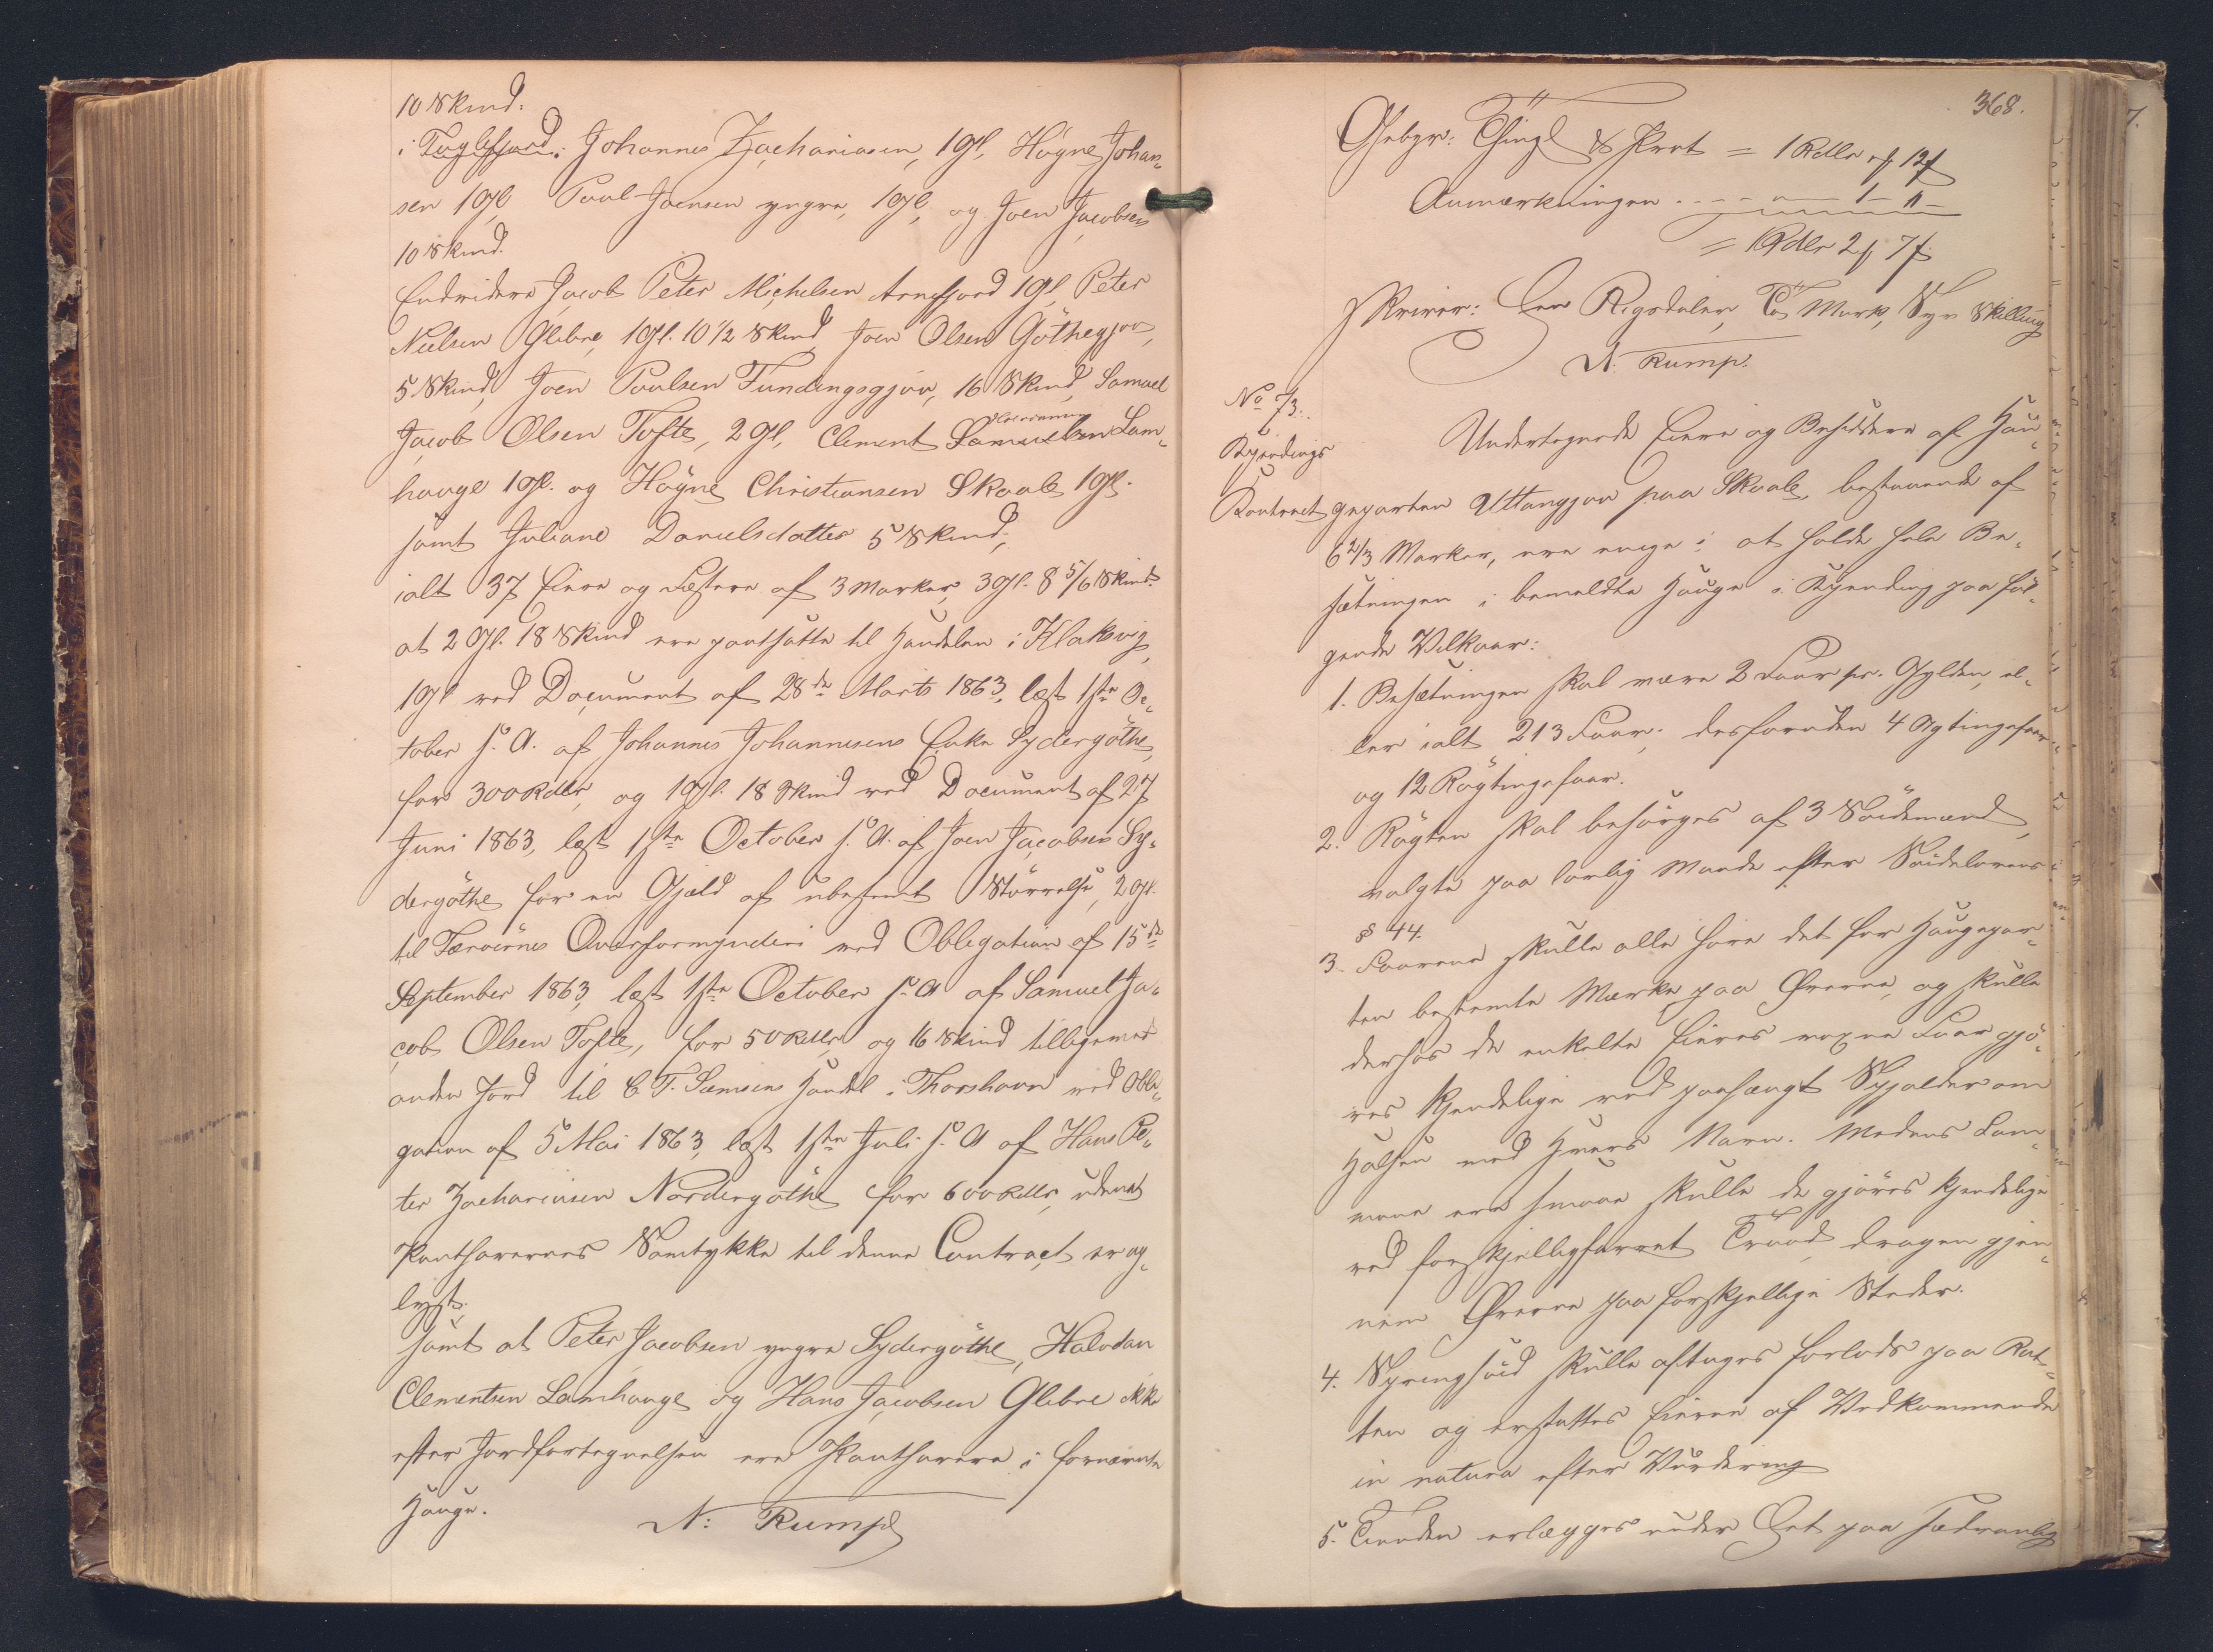 10 Skind.
i Fuglefjord: Johannes Zachariasen, 1 Gl, Högne Johan-
sen 1 Gl, Poul Joensen yngre, 1 Gl, og Joen Jacobsen
10 Skind.
Endvidere Jacob Peter Michelsen Arnefjord 1 Gl, Peter
Nielsen Glibre, 1 Gl. 10 1/2 Skind, Joen Olsen Göthegjov,
5 Skind, Joen Poulsen Fundingsgjov, 16 Skind, Samuel
Jacob Olsen Tofte, 2 Gl, Clement Samuelsen Lam-
hauge 1 Gl. og Högne Christiansen Skaale 1 Gl.
samt Juliane Danielsdatter 5 Skind;
ialt 37 Eiere og Fæstere af 3 Marker 3 Gl. 8 5/6 Skind.
at 2 Gl. 18 Skind ere pantsatte til Handelen i Klaksvig,
1 Gl ved Document af 28de Marts 1863, læst 1ste Oc-
tober s. A. af Johannes Johannesens Enke Sydergöthe,
for 300 Rdlr, og 1 Gl. 18 Skind ved Document af 27
Juni 1863, læst 1ste October s. A. af Joen Jacobsen Sy-
dergöthe for en Gjæld af ubestemt Störrelse, 2 Gl.
til Færöernes Overformynderi ved Obligation af 15de
September 1863, læst 1ste October s. A af Samuel Ja-
cob Olsen Tofte, for 50 Rdlr, og 16 Skind tilligemed
anden Jord til C. F. Siemsens Handel i Thorshavn ved Obli-
gation af 5 Mai 1863, læst 1ste Juli s. A af Hans Pe-
ter Zachariasen Nordergöthe for 600 Rdlr, uden at
Panthavernes Samtykke til denne Contract er op-
lyst.
samt at Peter Jacobsen yngre Sydergöthe, Halvdan
Clementsen Lamhauge og Hans Jacobsen Glibre ikke
efter Jordfortegnelsen ere Panthavere i fornævnte
Hauge.
N: Rump
368.
Gebyr: Thingl & Prot = 1 Rdlr
Anmærkningen
= 1 Rdlr 2 7
skriver: Een Rigsdaler, To Mark, Syv Skilling
N. Rump.
No 73.
Kjendings
Contract
Undertegnede Eiere og Besiddere af Hau-
geparten Uttangjov paa Skaale, bestaaende af
6 2/3 Marker, ere enige i at holde hele Be-
sætningen i bemeldte Hauge i Kjending paa föl-
gende Vilkaar:
1. Besætningen skal være 2 Faar pr. Gylden, el-
ler ialt 213 Faar; desforuden 4 Ogtingsfaar
og 12 Rögtingsfaar.
2. Rögten skal besörges af 3 Söidemænd,
valgte paa lovlig Maade efter Söidelovens
§ 44.
3. Faarene skulle alle have det for Haugepar-
ten bestemte Mærke paa Ørerne, og skulle
derhos de enkelte Eieres voxne Faar gjö-
res kjendelige ved paahængt Spjælder om
Halsen med Hvers Navn. Medens Lam-
mene ere smaae skulle de gjöres kjendelige
ved forskjelligfarvet Traad, dragen gjen-
nem Ørerne paa forskjellige Steder.
4. Springsöid skulle aftages forlods paa Rat-
ten og erstattes Eieren af Vedkommende
in natura efter Vurdering
5. Tienden erlægges under Eet paa sædvanlig